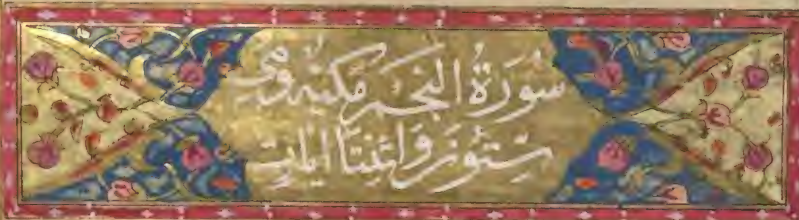 سُورَةُ النَّجْمِ مَكِّيَّة وَهِيَ
سِتُّونَ وَاثْنَتَا اٰيَات